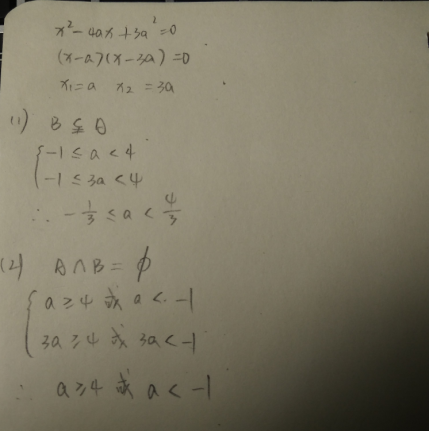 x²-4ax+3a²=0
(x-a)(x-3a)=0
x₁=a x₂=3a
(1) B⊊A
{-1≤a<4
-1≤3a<4
∴ -1/3≤a<4/3
(2) A∩B=∅
{a≥4或a<-1
3a≥4或3a<-1
∴ a≥4或a<-1